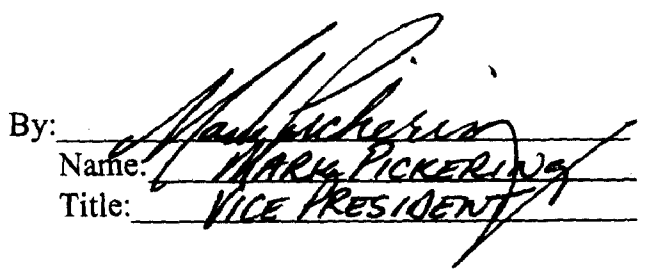 By: Mark Pickering
Name: MARK PICKERING
Title: VICE PRESIDENT